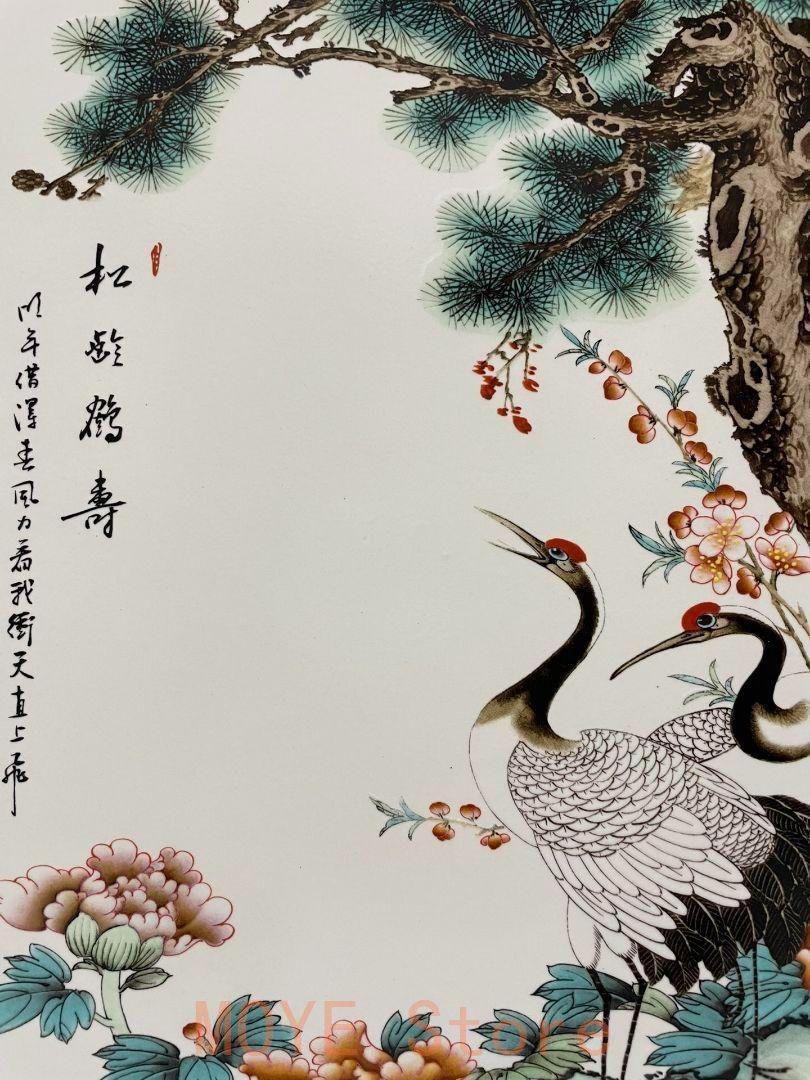 松龄鹤壽
明年借得春风力看我衝天直上飛
MOYE Store